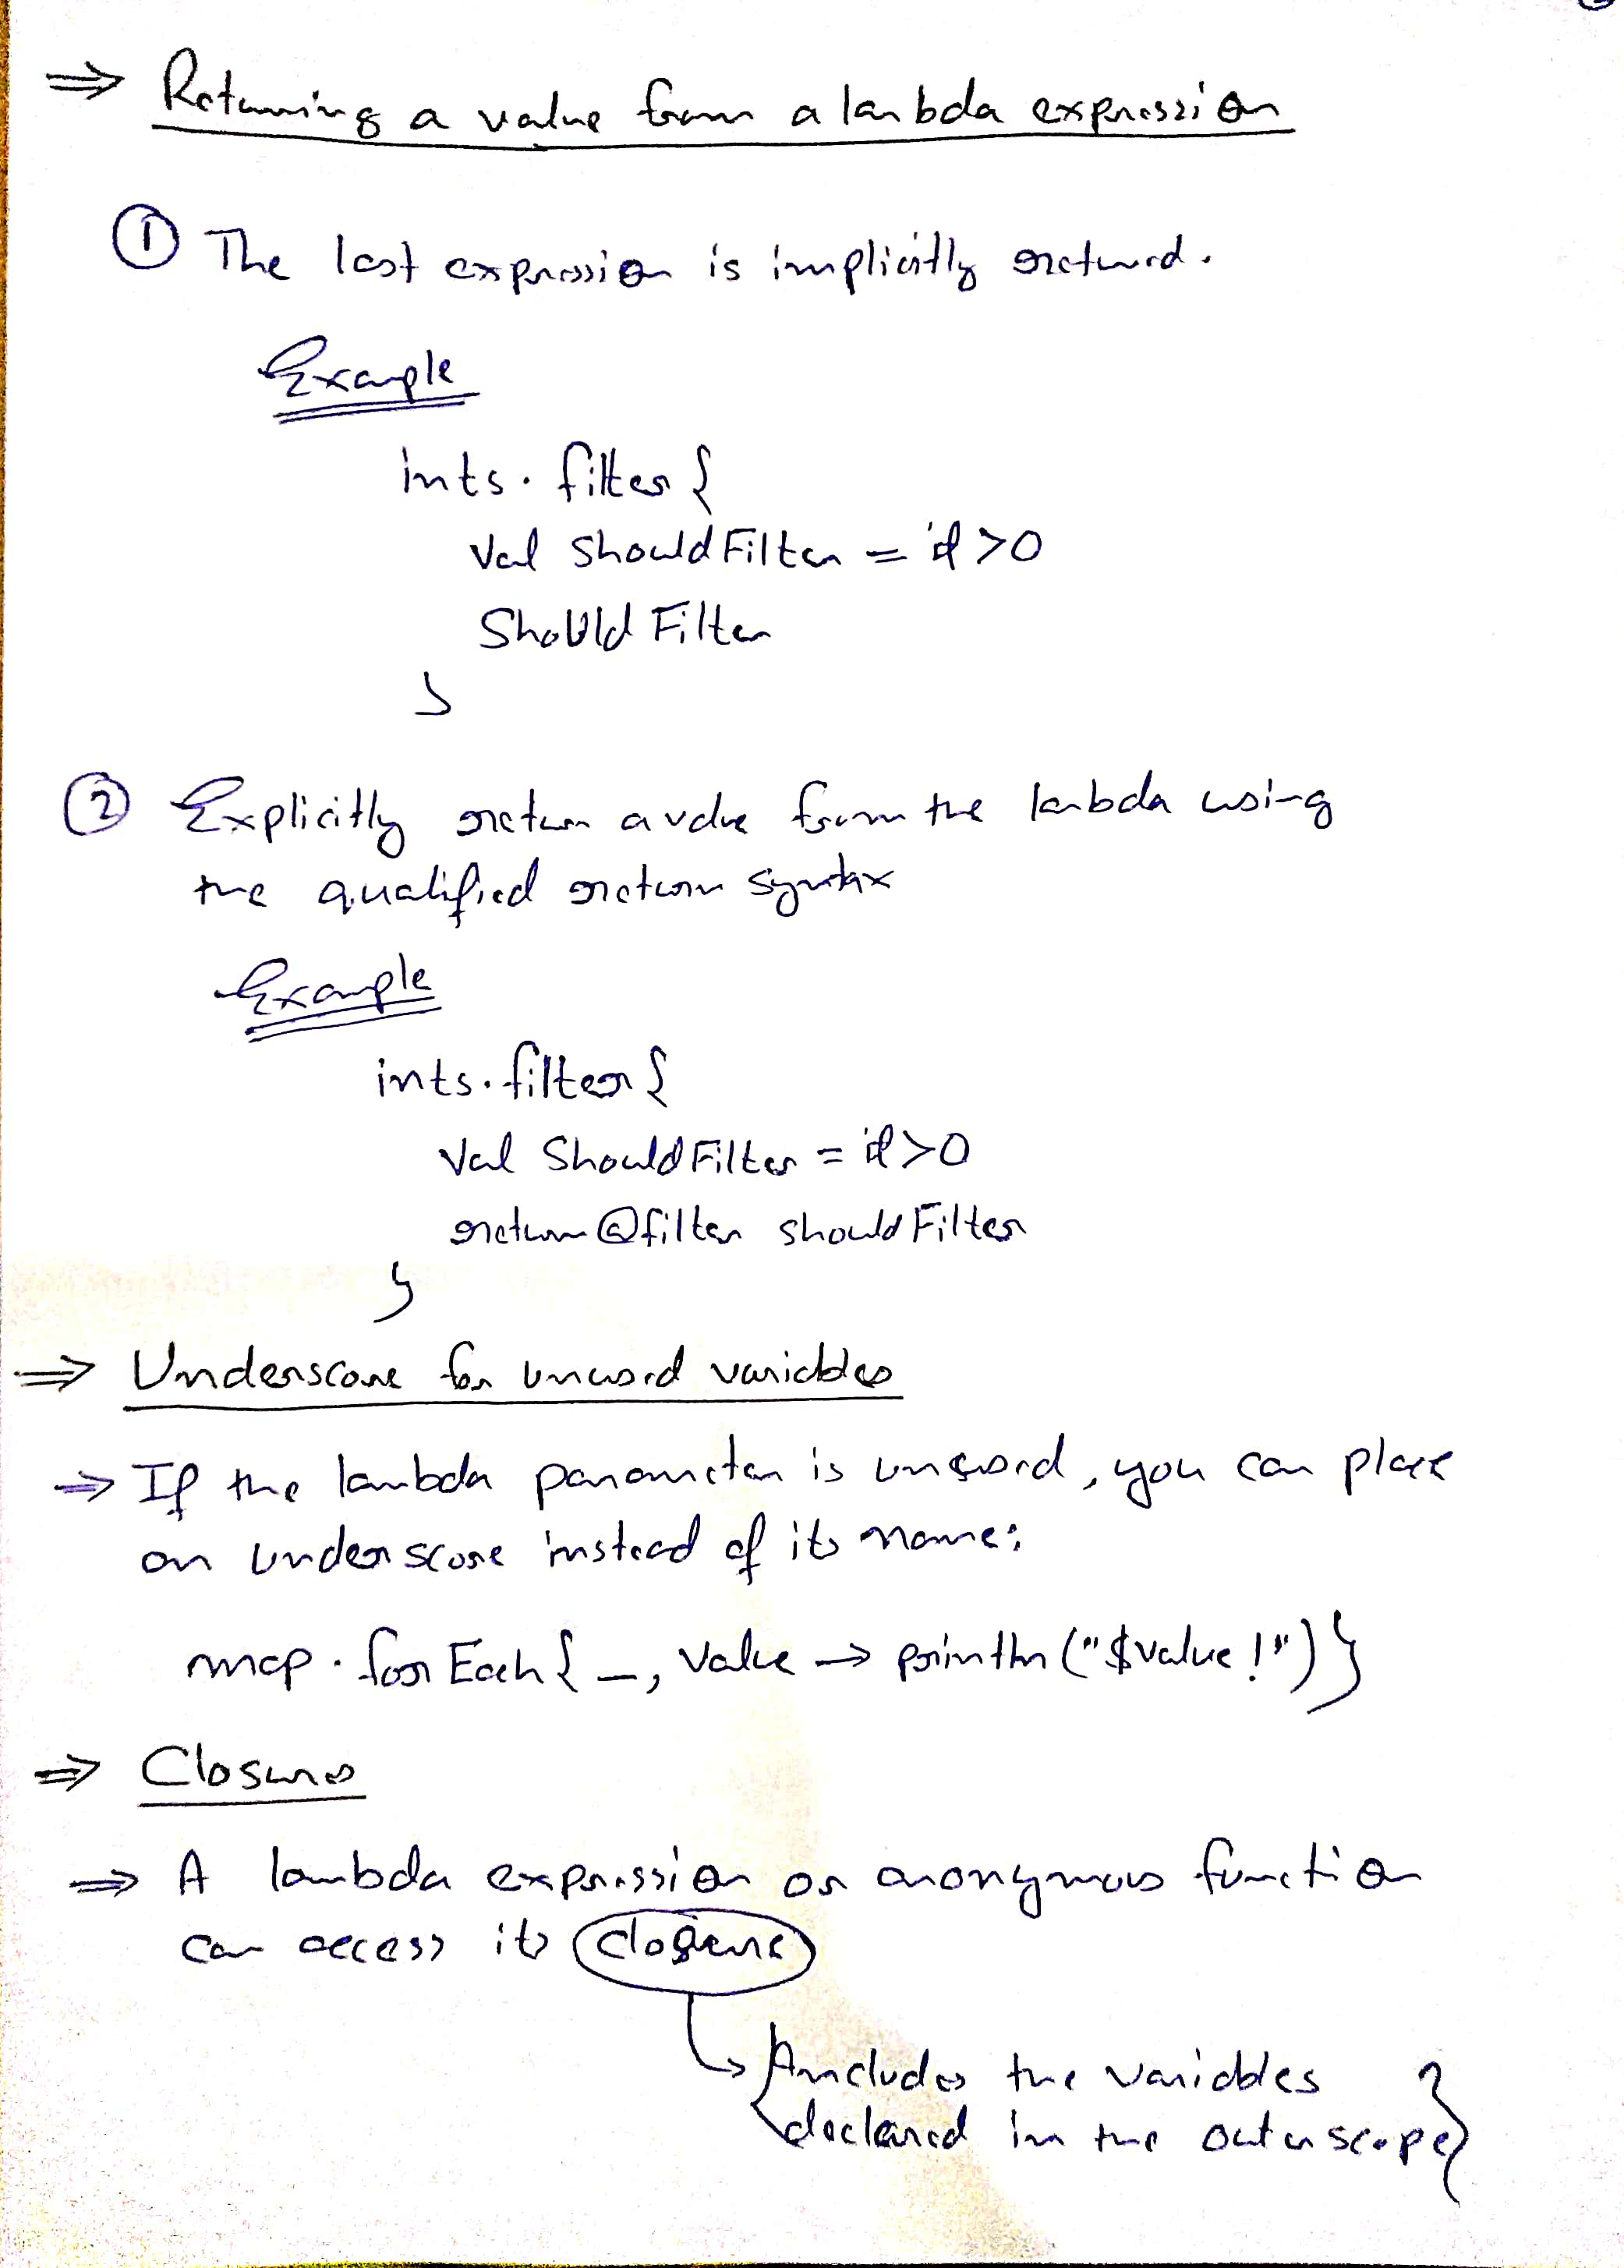 ⇒ Returning a value from a lambda expression
① The last expression is implicitly returned.
Example
ints.filter {
val shouldFilter = it > 0
shouldFilter
}
② Explicitly return a value from the lambda using
the qualified return syntax
Example
ints.filter {
val shouldFilter = it > 0
return@filter shouldFilter
}
⇒ Underscore for unused variables
⇒ If the lambda parameter is unused, you can place
an underscore instead of its name:
map.forEach { _, value → println("$value!") }
⇒ Closures
⇒ A lambda expression or anonymous function
can access its closure
↳ {Includes the variables
declared in the outer scope}